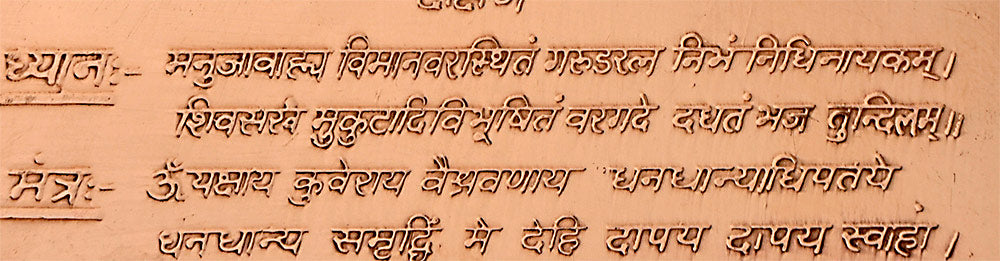 ध्यानः- मनुजावाह्य विमानवरस्थितं गरुडरत्न निभं निधिनायकम्।
शिवसखं मुकुटादिविभूषितं वरगदे दधतं भज तुन्दिलम्॥
मंत्रः- ॐ यक्षाय कुवेराय वैश्रवणाय धनधान्याधिपतये
धनधान्य समृद्धिं मे देहि दापय दापय स्वाहा।